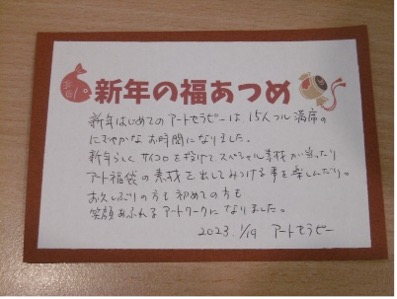 新年の福あつめ
新年はじめてのアートセラピーは15人フル満席の
にぎやかなお時間になりました。
新年らしくサイコロを投げてスペシャル素材が当ったり
アート福袋の素材を出してみつける事を楽しんだり。
お久しぶりの方も初めての方も
笑顔あふれるアートワークになりました。
2023.1/19 アートセラピー